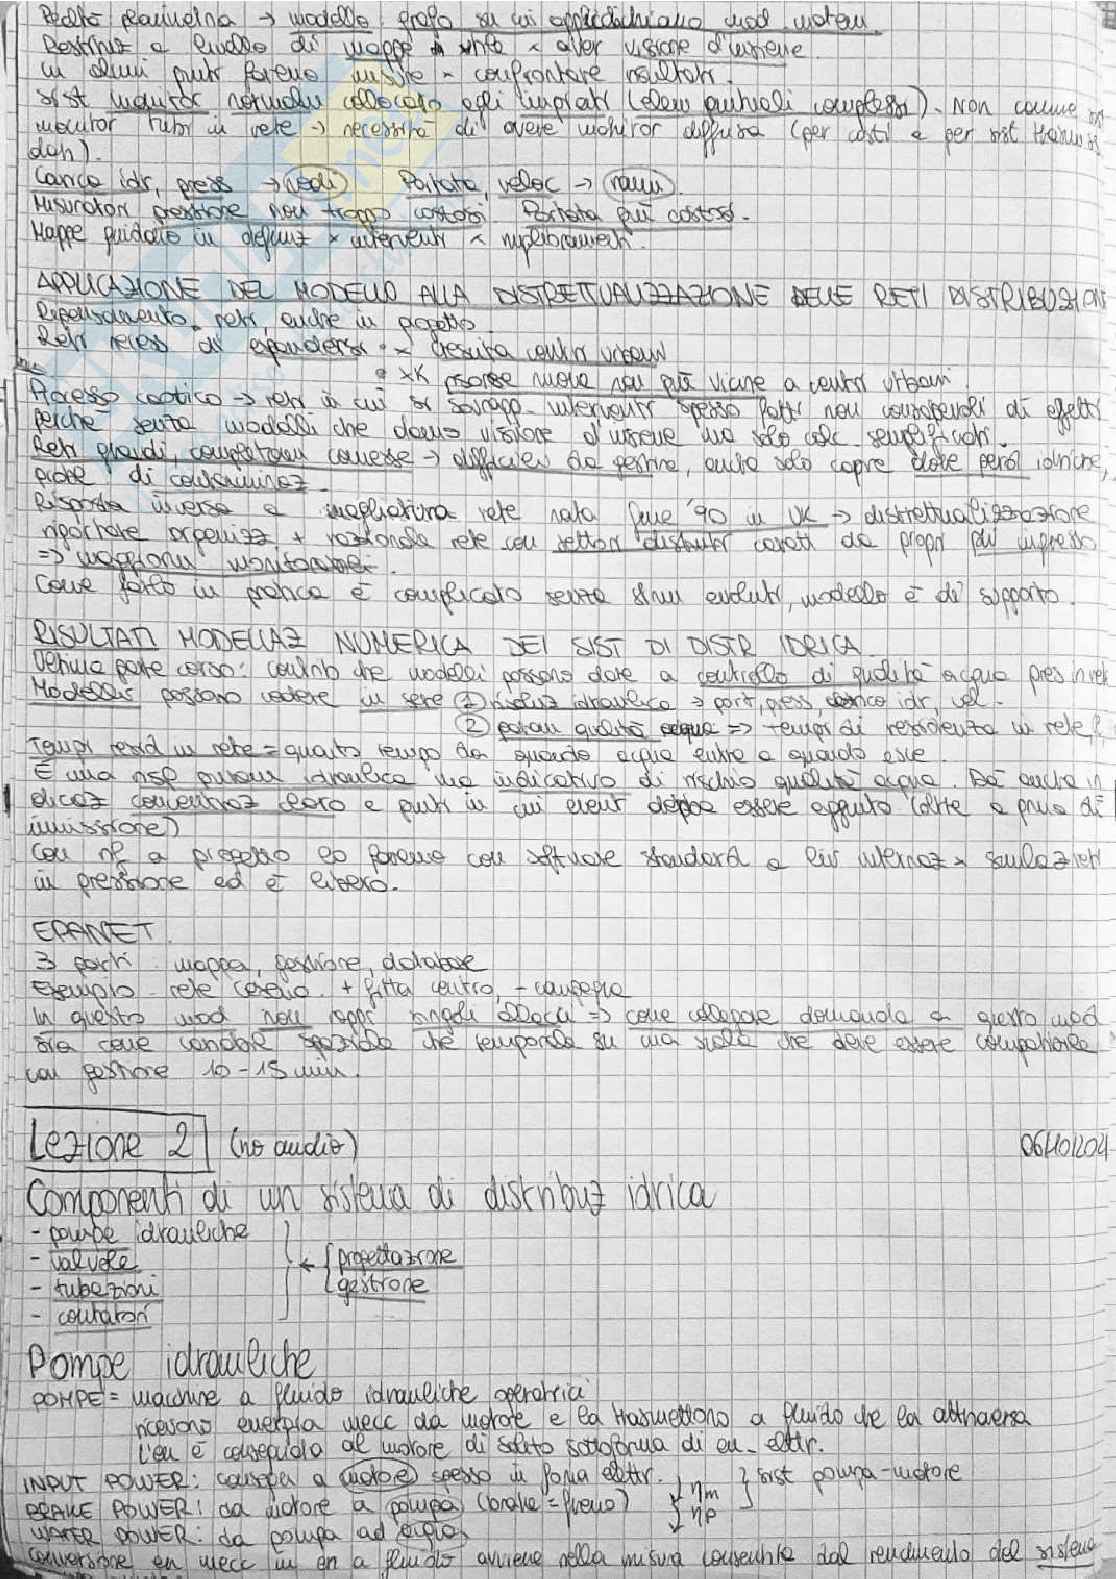 Realtà planimetria → modello grafo su cui applichiamo mod matem.
Restituz a livello di mappe x aver visione d'insieme
in alcuni punti faremo misure x confrontare risultati.
sist monitor normalm collocato agli impianti (elem puntuali complessi). Non comune
monitor tubi in rete → necessità di avere monitor diffusa (per costi e per sist trasmiss
dati).
Carico idr, press → nodi Portata, veloc → rami.
Misuratori pressione non troppo costosi. Portata più costosi.
Mappe guidano in definiz x interventi x miglioramenti.
APPLICAZIONE DEL MODELLO ALLA DISTRETTUALIZZAZIONE DELLE RETI DISTRIBUZIONE
Ripensamento reti, anche in progetto.
Reti necess di espandersi • x crescita centri urbani
• xk risorse nuove non più vicine a centri urbani.
Processo caotico → reti in cui si sovrapp. interventi spesso fatti non consapevoli di effetti
perché senza modelli che danno visione d'insieme ma solo calc. semplificati.
Reti grandi, completam connesse → difficili da gestire, anche solo capire dove perdi idriche,
prob di contaminaz.
Risposta inversa a magliatura rete nata fine '90 in UK → distrettualizzazione
riportare organizz + razionale rete con settori distributivi
=> maggiori monitoraggi.
Come farlo in pratica è complicato senza strum evoluti, modello è di supporto.
RISULTATI MODELLAZ NUMERICA DEI SIST DI DISTR IDRICA.
Ultima parte corso: contrib che modelli possono dare a controllo di qualità acqua pres in rete
Modellis possono vedere in serie ① risoluz idraulica → port, press, carico idr, vel.
② param qualità acqua => tempi di residenza in rete,
Tempi resid in rete = quanto tempo da quando acqua entra a quando esce.
È una risp puram idraulica ma indicativo di rischio qualità acqua. Dà anche in
dicaz concentraz cloro e punti in cui event debba essere aggiunto (oltre a prima di
immissione)
Con rif a progetto lo faremo con software standard a liv internaz x simulaz reti
in pressione ed è libero.
EPANET
3 parti mappa, gestione, database
Esempio rete Cesena. + fitta centro, - campagna
In questo mod non rapp singoli allacci => come collegare domanda a questo mod
sia come variabile spaziale che temporale su una scala che deve essere compatibile
con gestione 10-15 min.
Lezione 2 (no audio) 06/10/204
Componenti di un sistema di distribuz idrica
- pompe idrauliche
- valvole ← { progettazione
- tubazioni { gestione
- contatori
Pompe idrauliche
POMPE = macchine a fluido idrauliche operatrici
ricevono energia mecc da motore e la trasmettono a fluido che la attraversa
L'en è conseguida al motore di solito sottoforma di en. elettr.
INPUT POWER: consegn a motore spesso in forma elettr. ηm } sist pompa-motore
BRAKE POWER: da motore a pompa (brake = freno) ηp
WATER POWER: da pompa ad acqua
Conversione en mecc in en a fluido avviene nella misura consentita dal rendimento del sistema